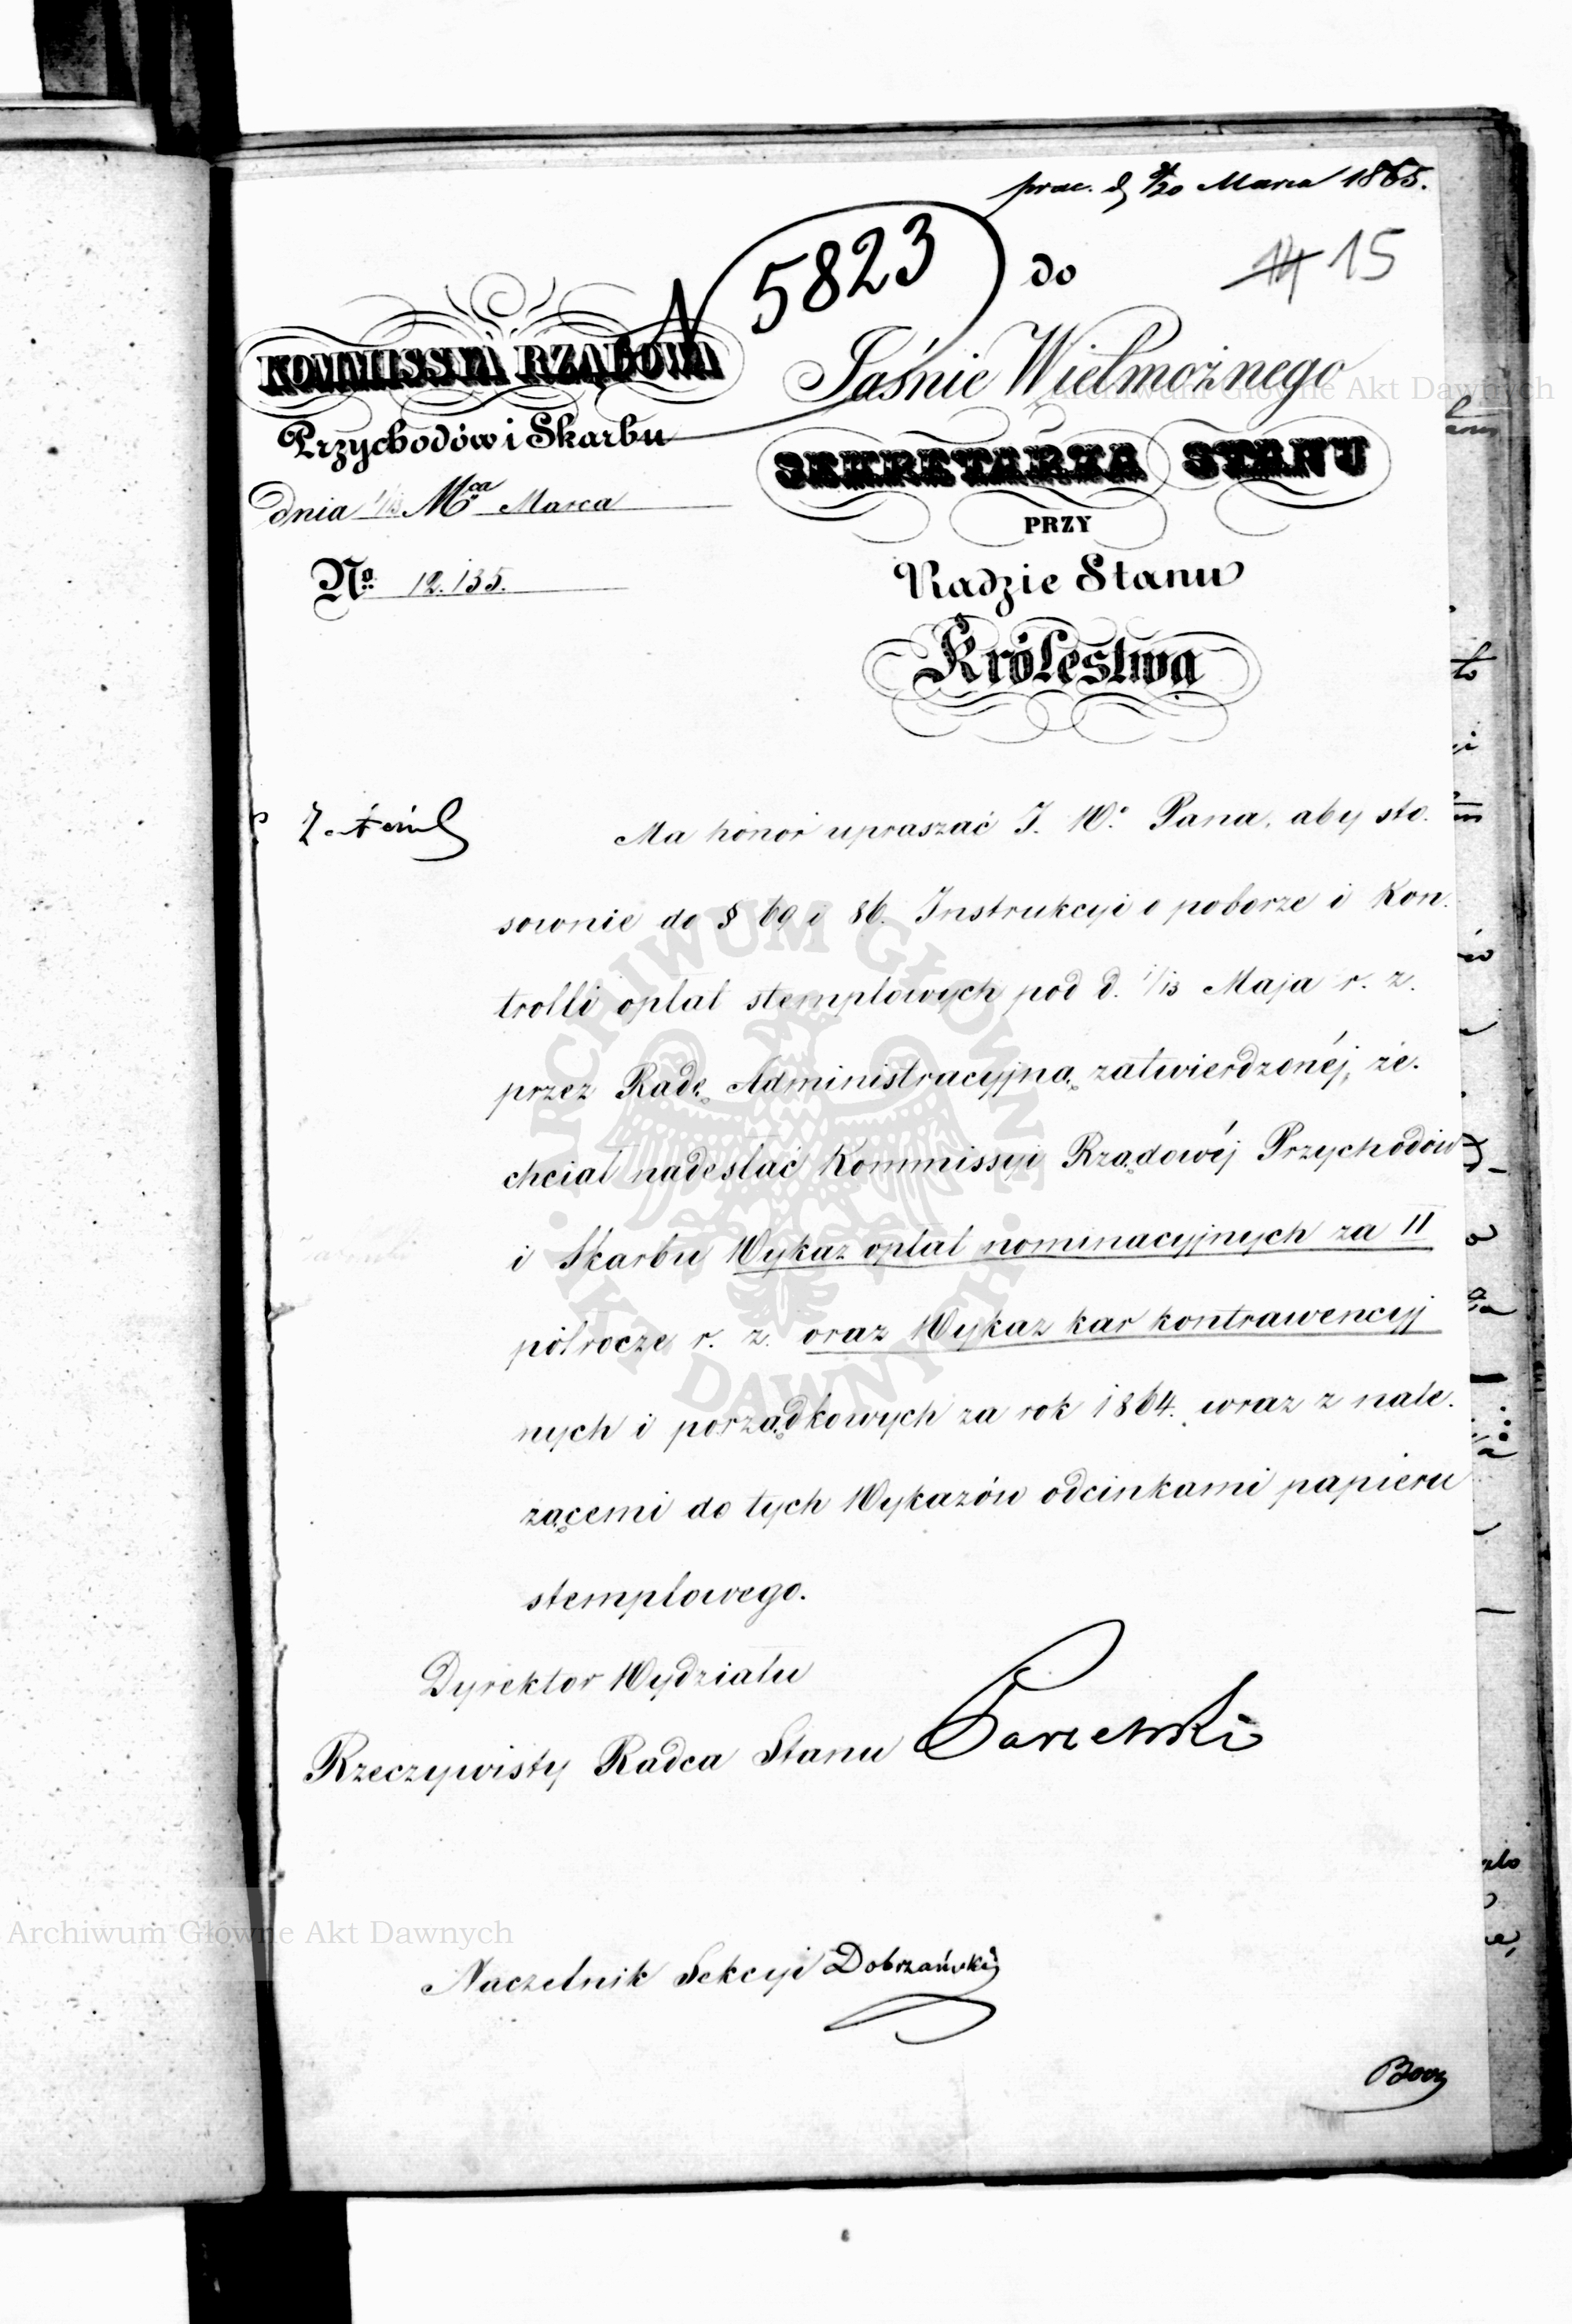 d. 8/20 Marca 1865.
N 5823
do
14 15
KOMMISSYA RZĄDOWA
Przychodów i Skarbu
dnia 1/13 Mca Marca
No 12.135.
Jaśnie Wielmożnego
SEKRETARZA STANU
PRZY
Radzie Stanu
Królestwa
Ma honor upraszać J. W. Pana, aby sto.
sownie do § 69 i 86. Instrukcyi o poborze i Kon.
trolli opłat stemplowych pod d. 1/13 Maja r. z.
przez Radę Administracyjną zatwierdzonéj, ze.
chciał nadesłać Kommissyi Rządowéj Przychodów
i Skarbu Wykaz opłat nominacyjnych za II
półrocze r. z. oraz Wykaz kar kontrawencyj
nych i porządkowych za rok 1864. wraz z nale.
żącemi do tych Wykazów odcinkami papieru
stemplowego.
Dyrektor Wydziału
Rzeczywisty Radca Stanu
Naczelnik Sekcyi Dobrzański
Archiwum Główne Akt Dawnych
Archiwum Główne Akt Dawnych
ARCHIWUM GŁÓWNE · AKT DAWNYCH ·